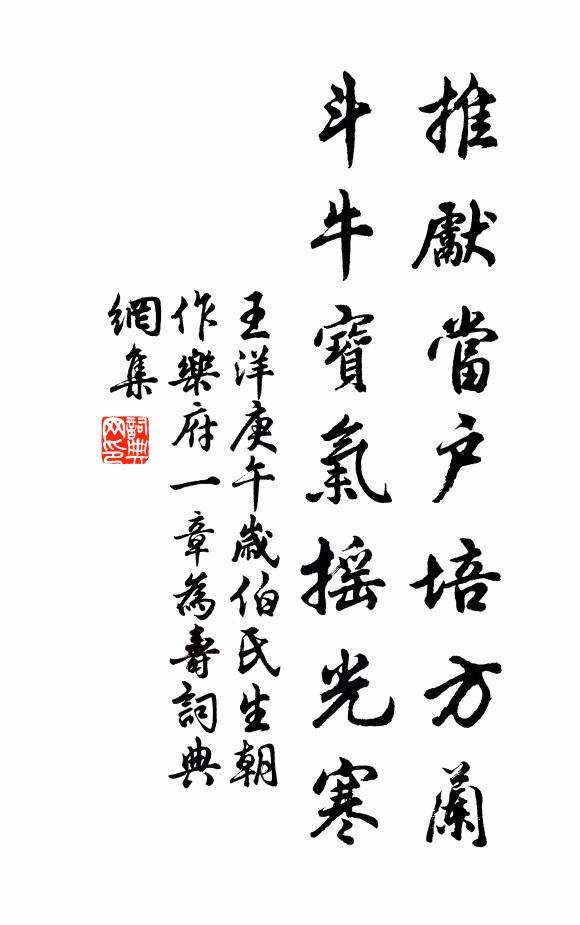 推獻當户培方蘭
斗牛寶氣摇光寒
王洋庚午歲伯氏生朝
作樂府一章為壽詞典
網集
詞典網印